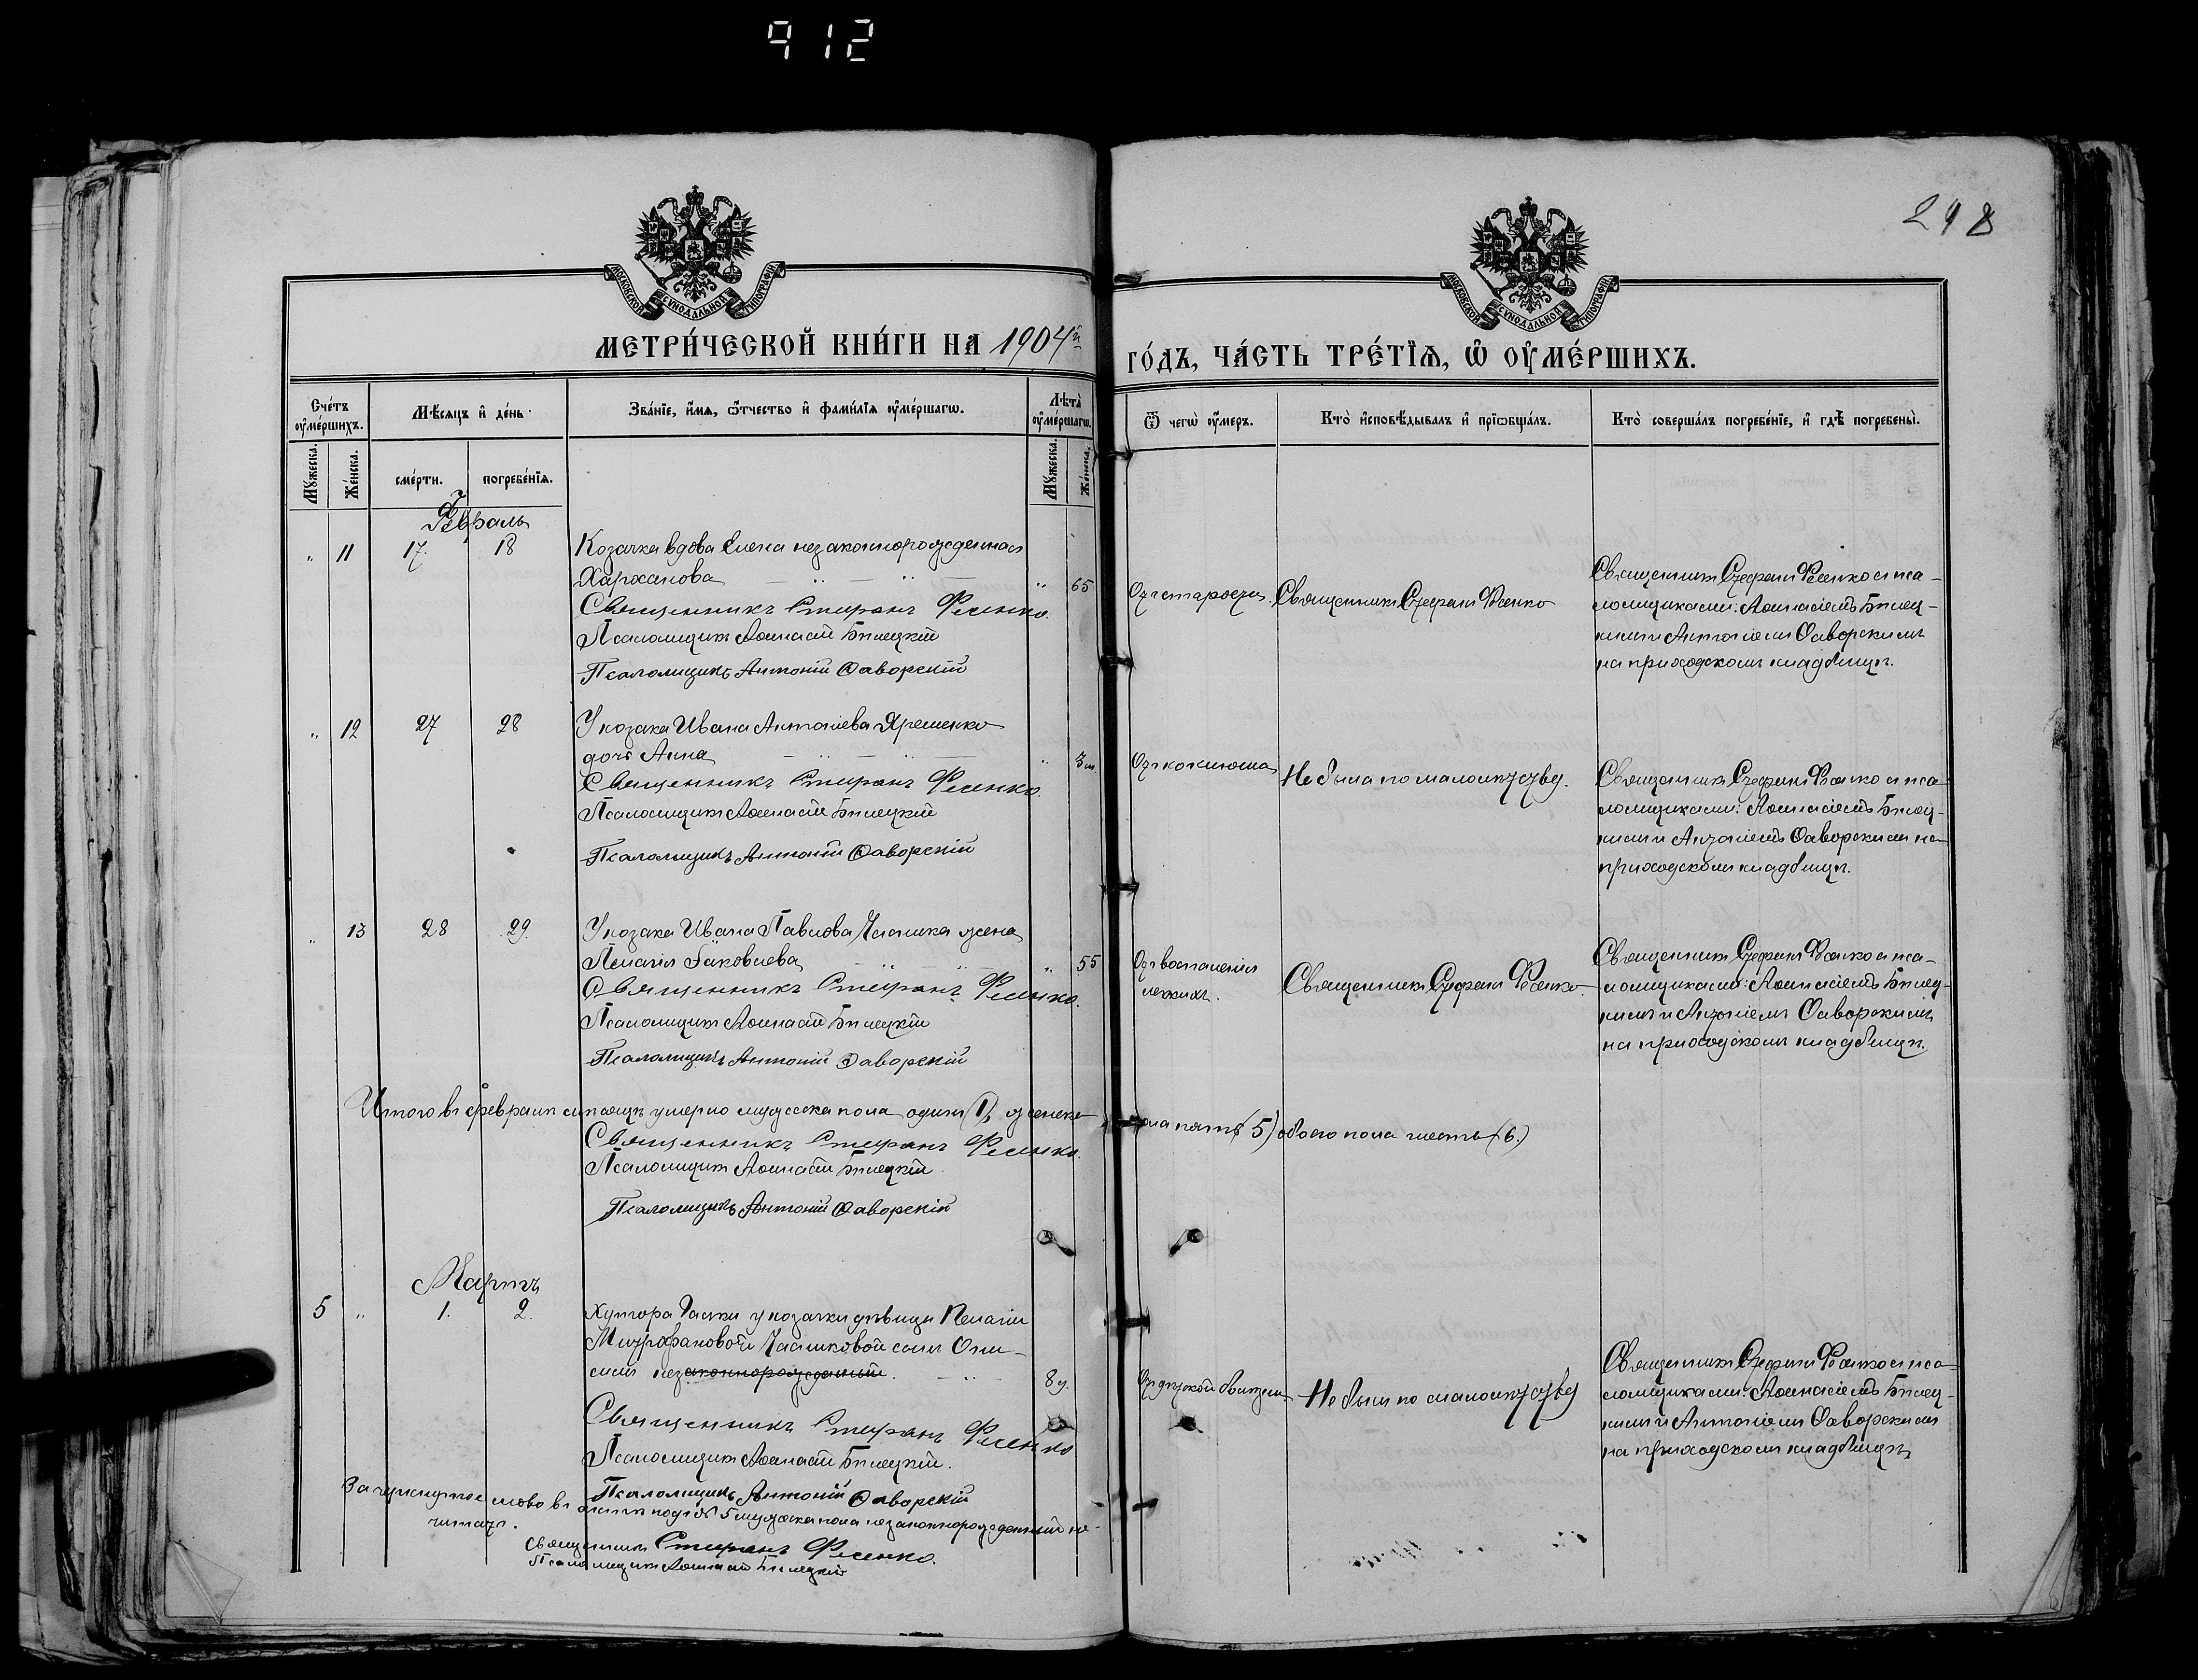 912
298
МОСКОВСКОЙ СѴНОДАЛЬНОЙ ТИПОГРАФІИ
МОСКОВСКОЙ СѴНОДАЛЬНОЙ ТИПОГРАФІИ
МЕТРИ́ЧЕСКОЙ КНИ́ГИ НА 1904й
ГО́ДЪ, ЧА́СТЬ ТРЕ́ТЇѦ, Ѡ҆ ОУ҆МЕ́РШИХЪ.
Сче́тъ оу҆ме́ршихъ.
Мѣ́сяцъ и҆ де́нь.
Зва́нїе, и҆́мѧ, ѻ҆́тчество и҆ фами́лїѧ оу҆ме́ршагѡ.
Лѣта̀ оу҆ме́ршагѡ.
Ѿ чегѡ̀ оу҆́меръ.
Кто̀ и҆сповѣ́дывалъ и҆ прїѡбща́лъ.
Кто̀ соверша́лъ погребе́нїе, и҆ гдѣ̀ погребены̀.
Мꙋ́жеска.
Же́нска.
сме́рти.
погребе́нїѧ.
Мꙋ́жеска.
Же́нска.
Февраль
" 11 17. 18 Козачка вдова Елена незаконнорожденная
Харханова " 65
Священникъ Стефанъ Фесенко.
Псаломщикъ Аѳанасій Бѣлецкій
Псаломщикъ Антоній Ѳаворскій
Отъ старости.
Священникъ Стефанъ Фесенко
Священникъ Стефанъ Фесенко съ пса-
ломщиками: Аѳанасіемъ Бѣлец-
кимъ и Антоніемъ Ѳаворскимъ
на приходскомъ кладбищѣ.
" 12 27 28 У козака Ивана Антоніева Яременко
дочь Анна " 3 м.
Священникъ Стефанъ Фесенко.
Псаломщикъ Аѳанасій Бѣлецкій
Псаломщикъ Антоній Ѳаворскій
Отъ коклюша
Не была по малолѣтству.
Священникъ Стефанъ Фесенко съ пса-
ломщиками: Аѳанасіемъ Бѣлец-
кимъ и Антоніемъ Ѳаворскимъ на
приходскомъ кладбищѣ.
" 13 28 29. У козака Ивана Павлова жена
Пелагія Іаковлева " 55
Священникъ Стефанъ Фесенко.
Псаломщикъ Аѳанасій Бѣлецкій
Псаломщикъ Антоній Ѳаворскій
Отъ воспаленія
легкихъ.
Священникъ Стефанъ Фесенко.
Священникъ Стефанъ Фесенко съ пса-
ломщиками: Аѳанасіемъ Бѣлец-
кимъ и Антоніемъ Ѳаворскимъ
на приходскомъ кладбищѣ.
Итого въ февралѣ мѣсяцѣ умерло мужеска пола одинъ (1), женска
пола пять (5) обоего пола шесть (6.)
Священникъ Стефанъ Фесенко.
Псаломщикъ Аѳанасій Бѣлецкій.
Псаломщикъ Антоній Ѳаворскій
Мартъ
5 " 1. 2. Хутора у козачки дѣвицы Пелагіи
Митрофановой сынъ Они-
симъ незаконнорожденный. 8 д.
Священникъ Стефанъ Фесенко
Псаломщикъ Аѳанасій Бѣлецкій.
Псаломщикъ Антоній Ѳаворскій
Не былъ по малолѣтству
Священникъ Стефанъ Фесенко съ пса-
ломщиками: Аѳанасіемъ Бѣлец-
кимъ и Антоніемъ Ѳаворскимъ
на приходскомъ кладбищѣ
Зачеркнутое слово въ подъ № 5 мужеска пола незаконнорожденный не
читать.
Священникъ Стефанъ Фесенко.
Псаломщикъ Аѳанасій Бѣлецкій